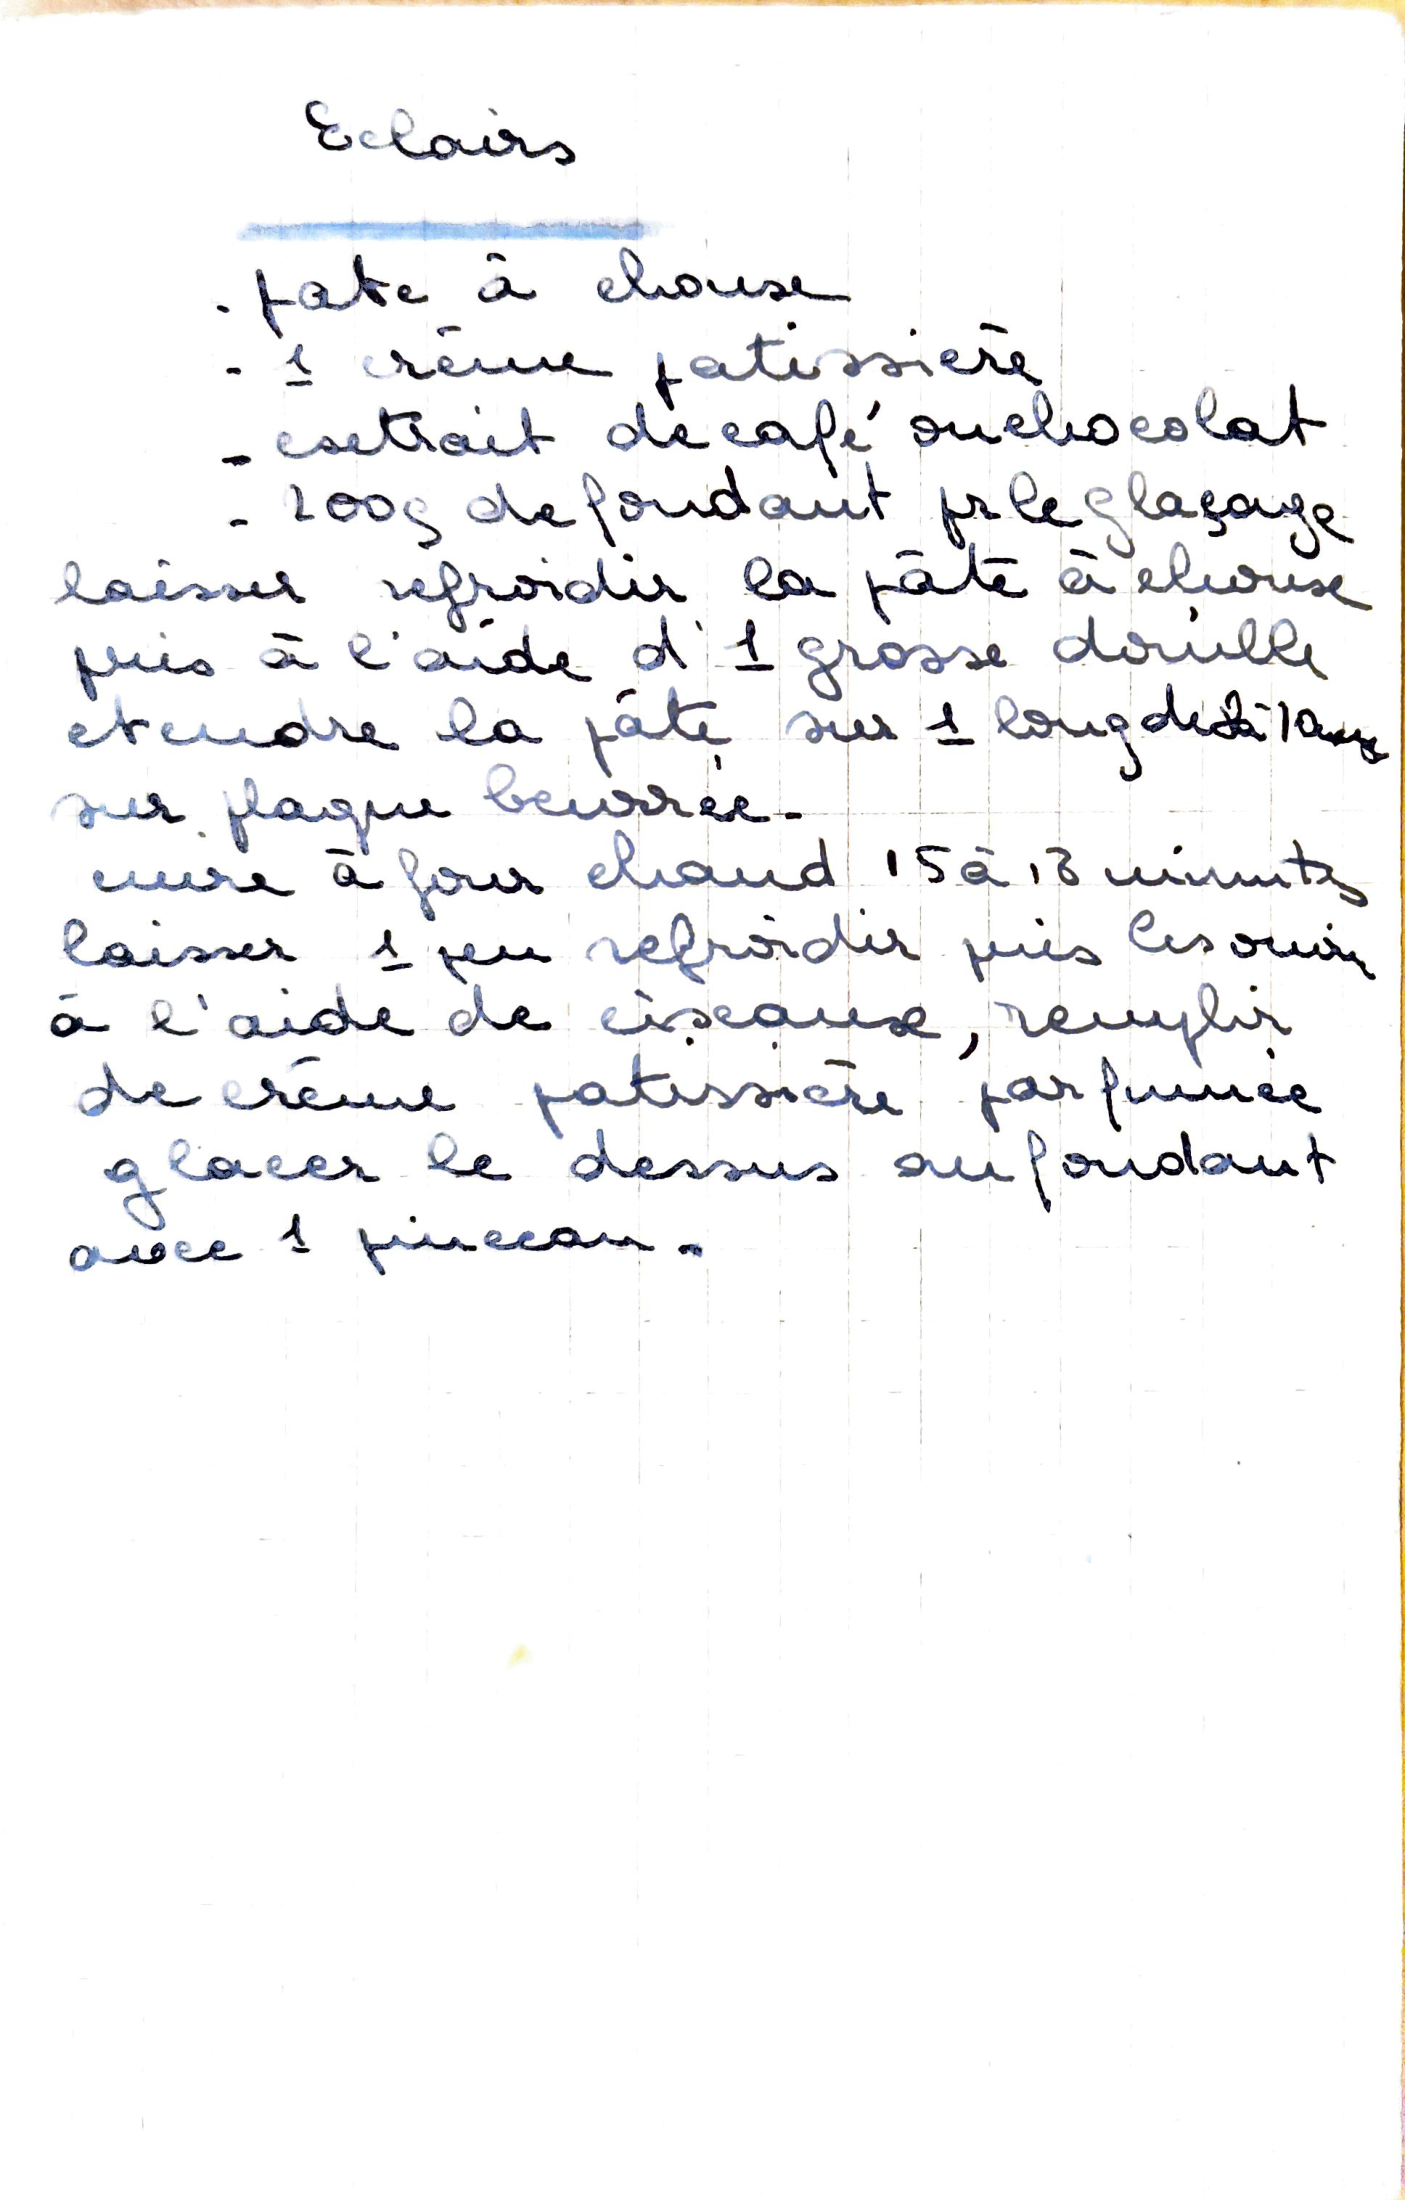 Eclairs
. pate à choux
- 1 crème patissière
- extrait de café ou chocolat
- 200g de fondant pr le glaçage
laisser refroidir la pâte à choux
puis à l'aide d'1 grosse douille
etendre la pâte sur 1 long de à 10 cm
sur plaque beurrée -
cuire à four chaud 15 à 18 minutes
laisser 1 peu refroidir puis les ouvrir
à l'aide de ciseaux, remplir
de crème patissière parfumée
glacer le dessus au fondant
avec 1 pinceau -